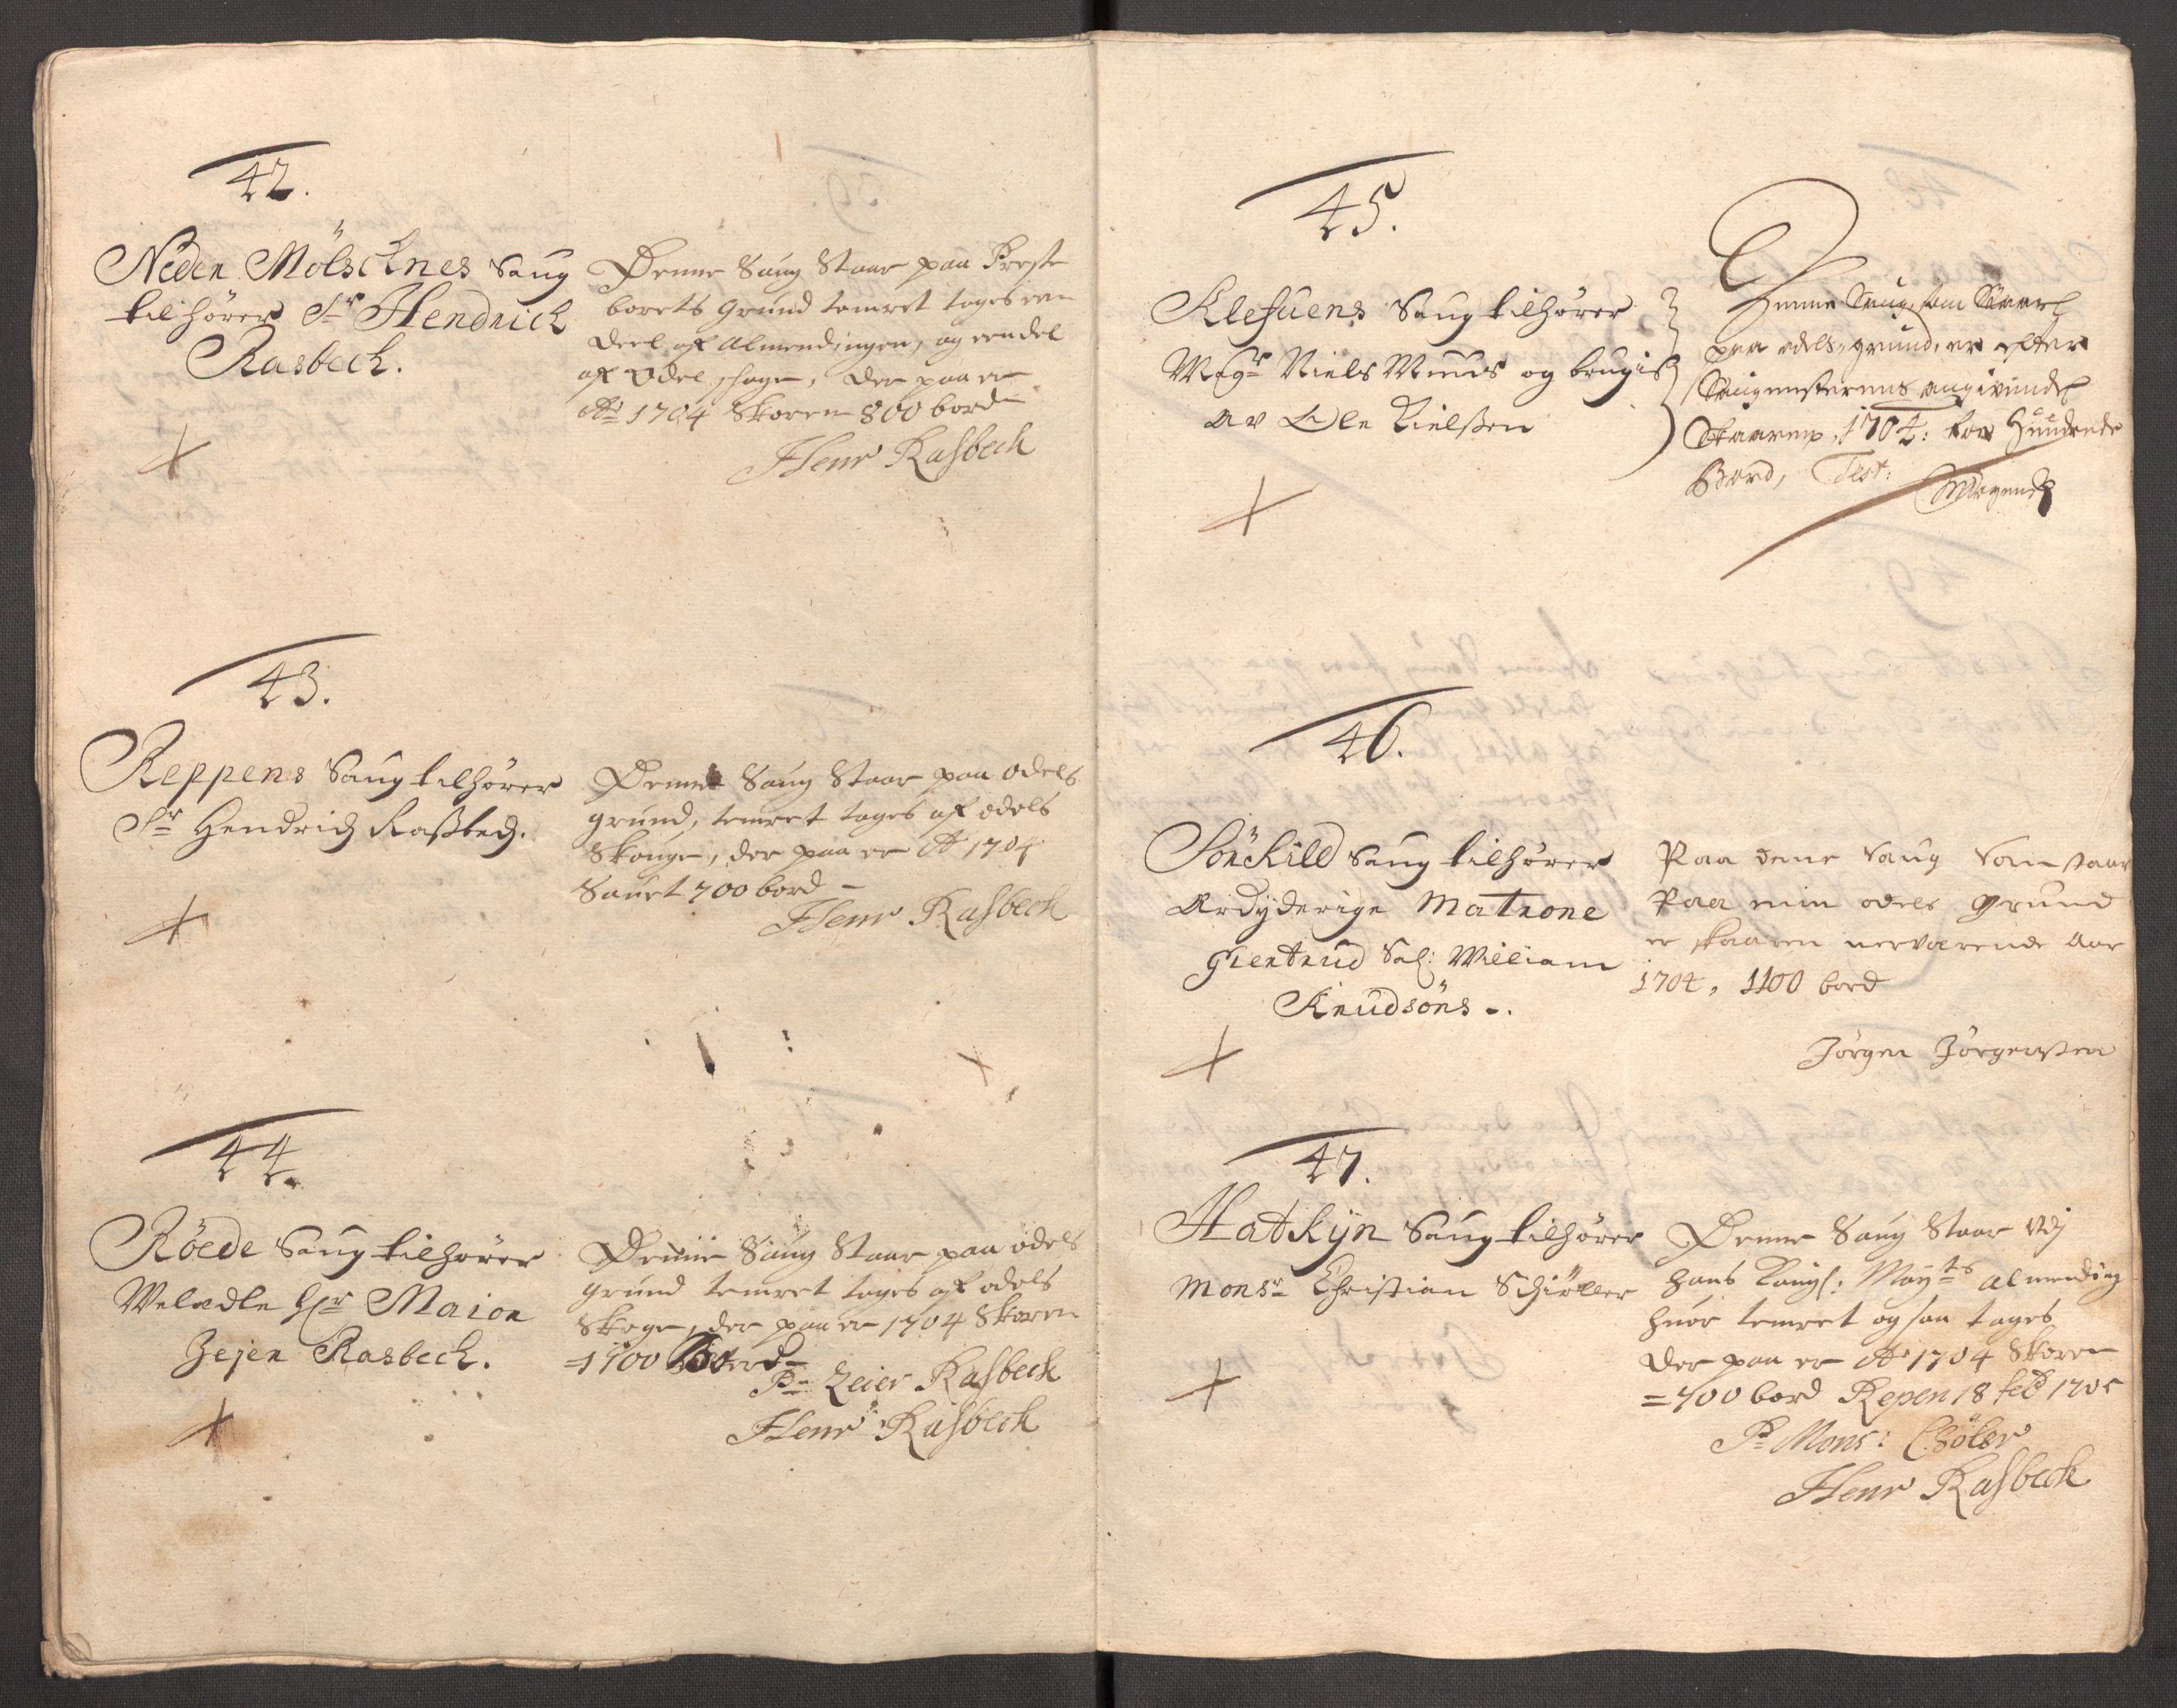 42.
Neden Mölschnes Saug
tilhører Sr Hendrich
Rasbech.
Denne Saug Staar paa Preste
borets grund temret toges een
deel af Almendingen, og een del
af Odel schage, der paa er
Ao 1704 Skoren 800 bord
Henr Rasbech
43.
Reppens Saug tilhører
Sr Hendrich Rasbech.
Denne Saug Staar paa odels
grund, temret tages af odels
Skouge, der paa er Ao 1704
Sauet 700 bord
Henr Rasbech
44.
Röede Saug tilhører
Welædle Hr Maior
Zejer Rasbech.
Denne Saug Staar paa odels
grund temret tages af odels
Skoge, der paa er 1704 Skoren
=1700 Bord
Pr Zeier Rasbech
Henr Rasbech
45.
Klefuens Saug tilhører
Magr Niels Muus og brugis
av Ole Nielssen
Denne Saug, som Staar
paa odels grund, er efter
Saugmesterens angivende
Skaaren, 1704: Hundrede
Bord, Test:
46.
Sönkild Saug tilhører
Ærdÿderige Matrone
Giertrud Sal: William
Knudsöns.
Paa dene Saug som staar
Paa min odels grund
er skaaren nerværende Aar
1704, 1100 bord
Jörgen Jörgensen
47.
Hatkijn Saug tilhører
Monsr Christian Schiöller
Denne Saug Staar ved
hans Kongl: Mayts almending
huor temret og saa tages
der paa er Ao 1704 Skoren
=700 bord Repen 18 feb 1705
Pr Mons: Chöler
Henr Rasbech